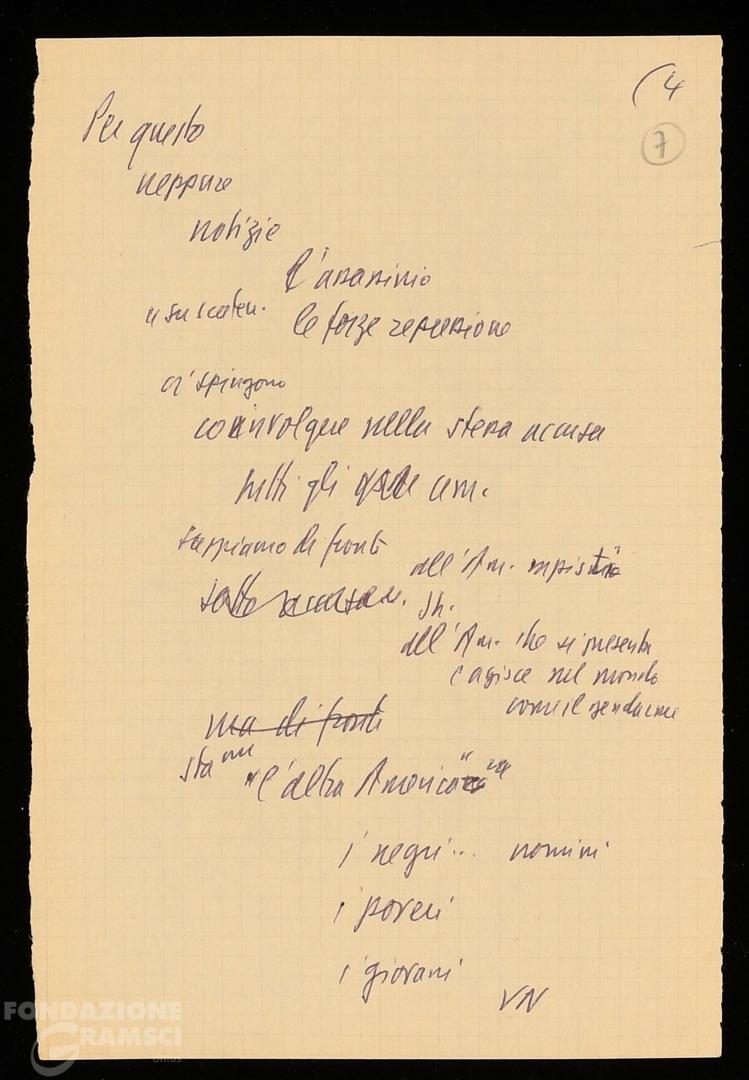 (4
7
Per questo
neppure
notizie
l'assassinio
le forze repressione
ci spingono
coinvolgere nella stessa accusa
tutti gli am.
sappiamo di fronte
all'Am.
sotto accusa
all'Am. che si presenta
e agisce nel mondo
come il gendarme
ma di fronte
sta
"l'altra America"
i negri... uomini
i poveri
i giovani
VN
FONDAZIONE
GRAMSCI
onlus